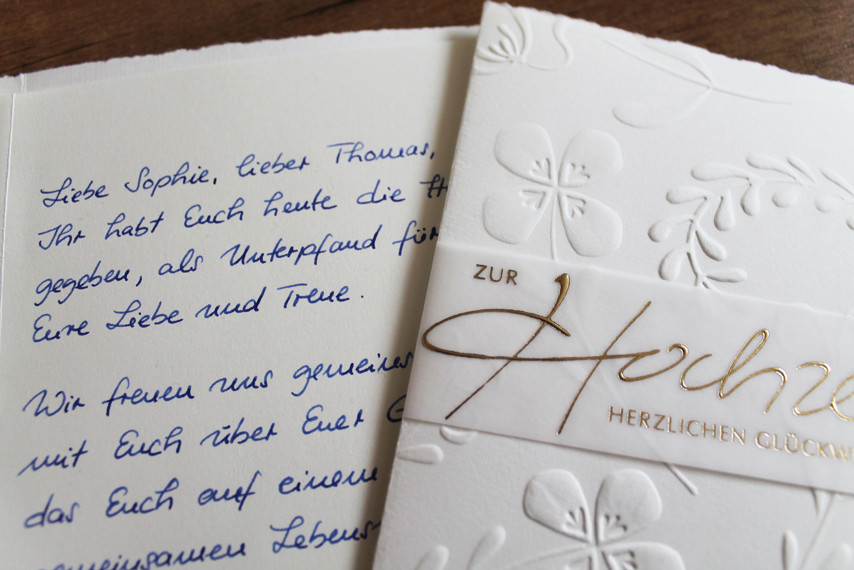 Liebe Sophie, lieber Thomas,
Ihr habt Euch heute die
gegeben, als Unterpfand für
Eure Liebe und Treue.
Wir freuen uns gemeins
mit Euch über Euer G
das Euch auf einem
gemeinsamen Lebens-
ZUR
Hochze
HERZLICHEN GLÜCKW